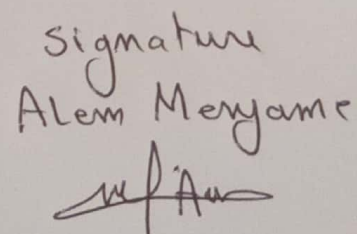 Signature
Alem Meryame